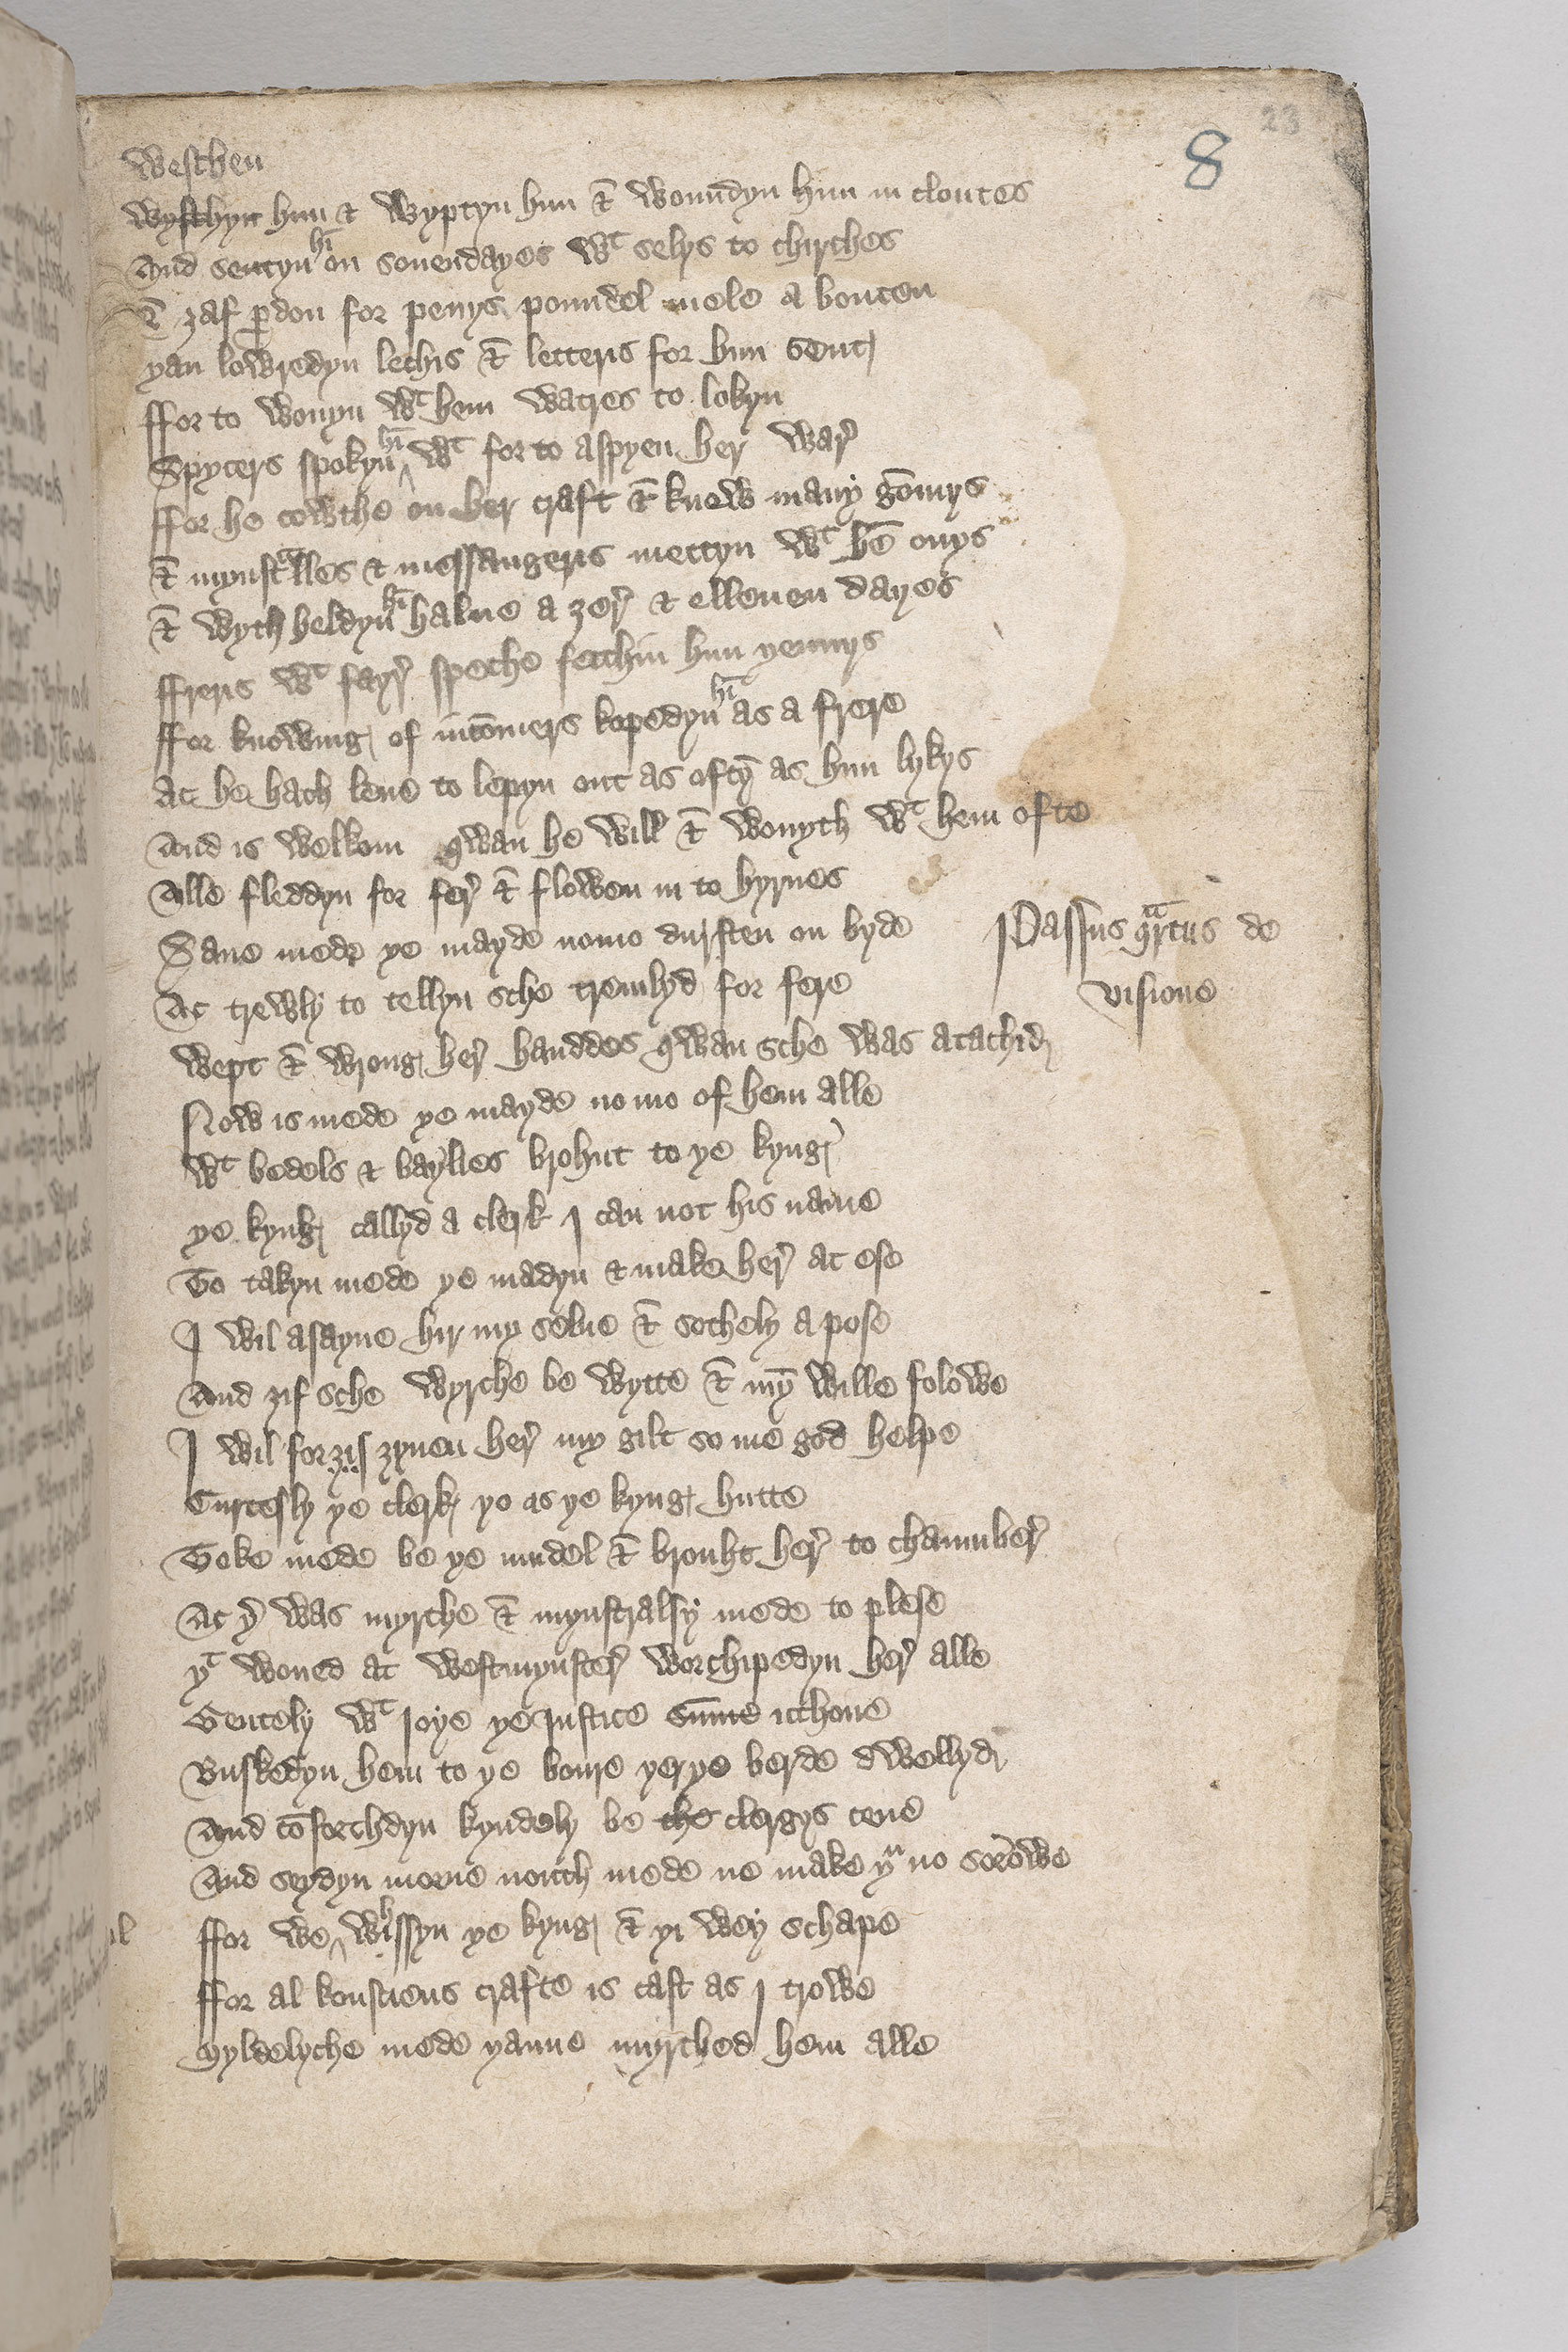 23
8
Weschen
Wyschyn him & Wyptyn him & Wounndyn him in cloutes
And sentyn hī on sonendayes Wt selys to chirches
& ȝaf ꝑdon for penys poundel mele a bouten
yan lowredyn lechis & letteris for him sent
ffor to Wonyn Wt hem Watres to lokyn
Spycers spokyn hī Wt for to aspyen her War
ffor he cowthe on her craft & knew many gōmys
& mynstalles & messangeris mettyn Wt hē onys
& Wyth heldyn hī halue a ȝer & elleuen dayes
ffreris Wt fayr speche fetchin him yennys
ffor knowing of incōmers kopedyn hī as a frere
Ac he hath leue to lepyn out as oftyn as him lykys
And is Welkom qwan he Will & Wonyth Wt hem ofte
Alle fleddyn for fer & flowen in to hyrnes
Saue mede ye mayde nomo dursten on byde
Passus qrtus de
visione
Ac trewly to tellyn sche tremlyd for fere
Wept & Wrong her handdes qwan sche was atachid
Now is mede ye mayde no mo of hem alle
Wt bedels & baylles brohut to ye kyng
ye kynk callyd a clerk I can not his name
To takyn mede ye madyn & make her at ese
I Wil asayne hir my selue & sothely apose
And ȝif sche Wyrche be Wytte & my Wille folowe
I Wil forȝif ȝyuen her my gilt so me god helpe
Curtesly ye clerk yo as ye kyng hutte
Toke mede be ye mudel & brouht her to chaumber
Ac yr was myrthe & mynstralsy mede to plese
yt Woned at Westmynster Worchipedyn her alle
Gentely Wt ioye ye iustice sūme ichone
Buskedyn hem to ye boure yer ye berde dwellyd
And cōforthdyn kyndely be the clergys leue
And seydyn morne nouth mede ne make yu no sorowe
ffor We Wl Wissyn ye kyng & yi Wey schape
ffor al konsciens crafte is cast as I trowe
Myldelyche mede yanne myrthed hem alle